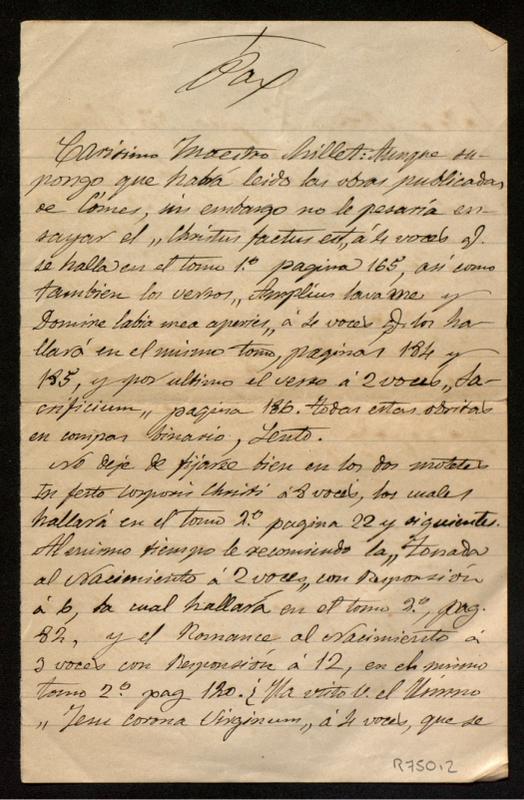 Pax
Carisimo Maestro Millet: Aunque su-
pongo que habrá leido las obras publicadas
de Cómes, sin embargo no le pesaría en-
sayar el „Christus factus est„ á 4 voces q.
se halla en el tomo 1.º pagina 165, asi como
tambien los versos „Amplius lavame y
Domine labia mea aperies„ á 4 voces q. los ha-
llará en el mismo tomo, paginas 184 y
185, y por ultimo el verso á 2 voces „Sa-
crificium„ pagina 186. todas estas obritas
en compas binario, Lento.
No deje de fijarse bien en los dos motetes
In festo Corporis Christi á 8 voces, los cuales
hallará en el tomo 2.º pagina 22 y siguiente.
Al mismo tiempo le recomiendo la „Tonada
al Nacimiento á 2 voces„ con Responsión
á 6, la cual hallará en el tomo 2.º, pag.
82, y el Romance al Nacimiento á
3 voces con Responsión á 12, en el mismo
tomo 2.º pag 120. ¿Ha visto V. el Himno
„Jesu corona Virginum„ á 4 voces, que se
R750.2